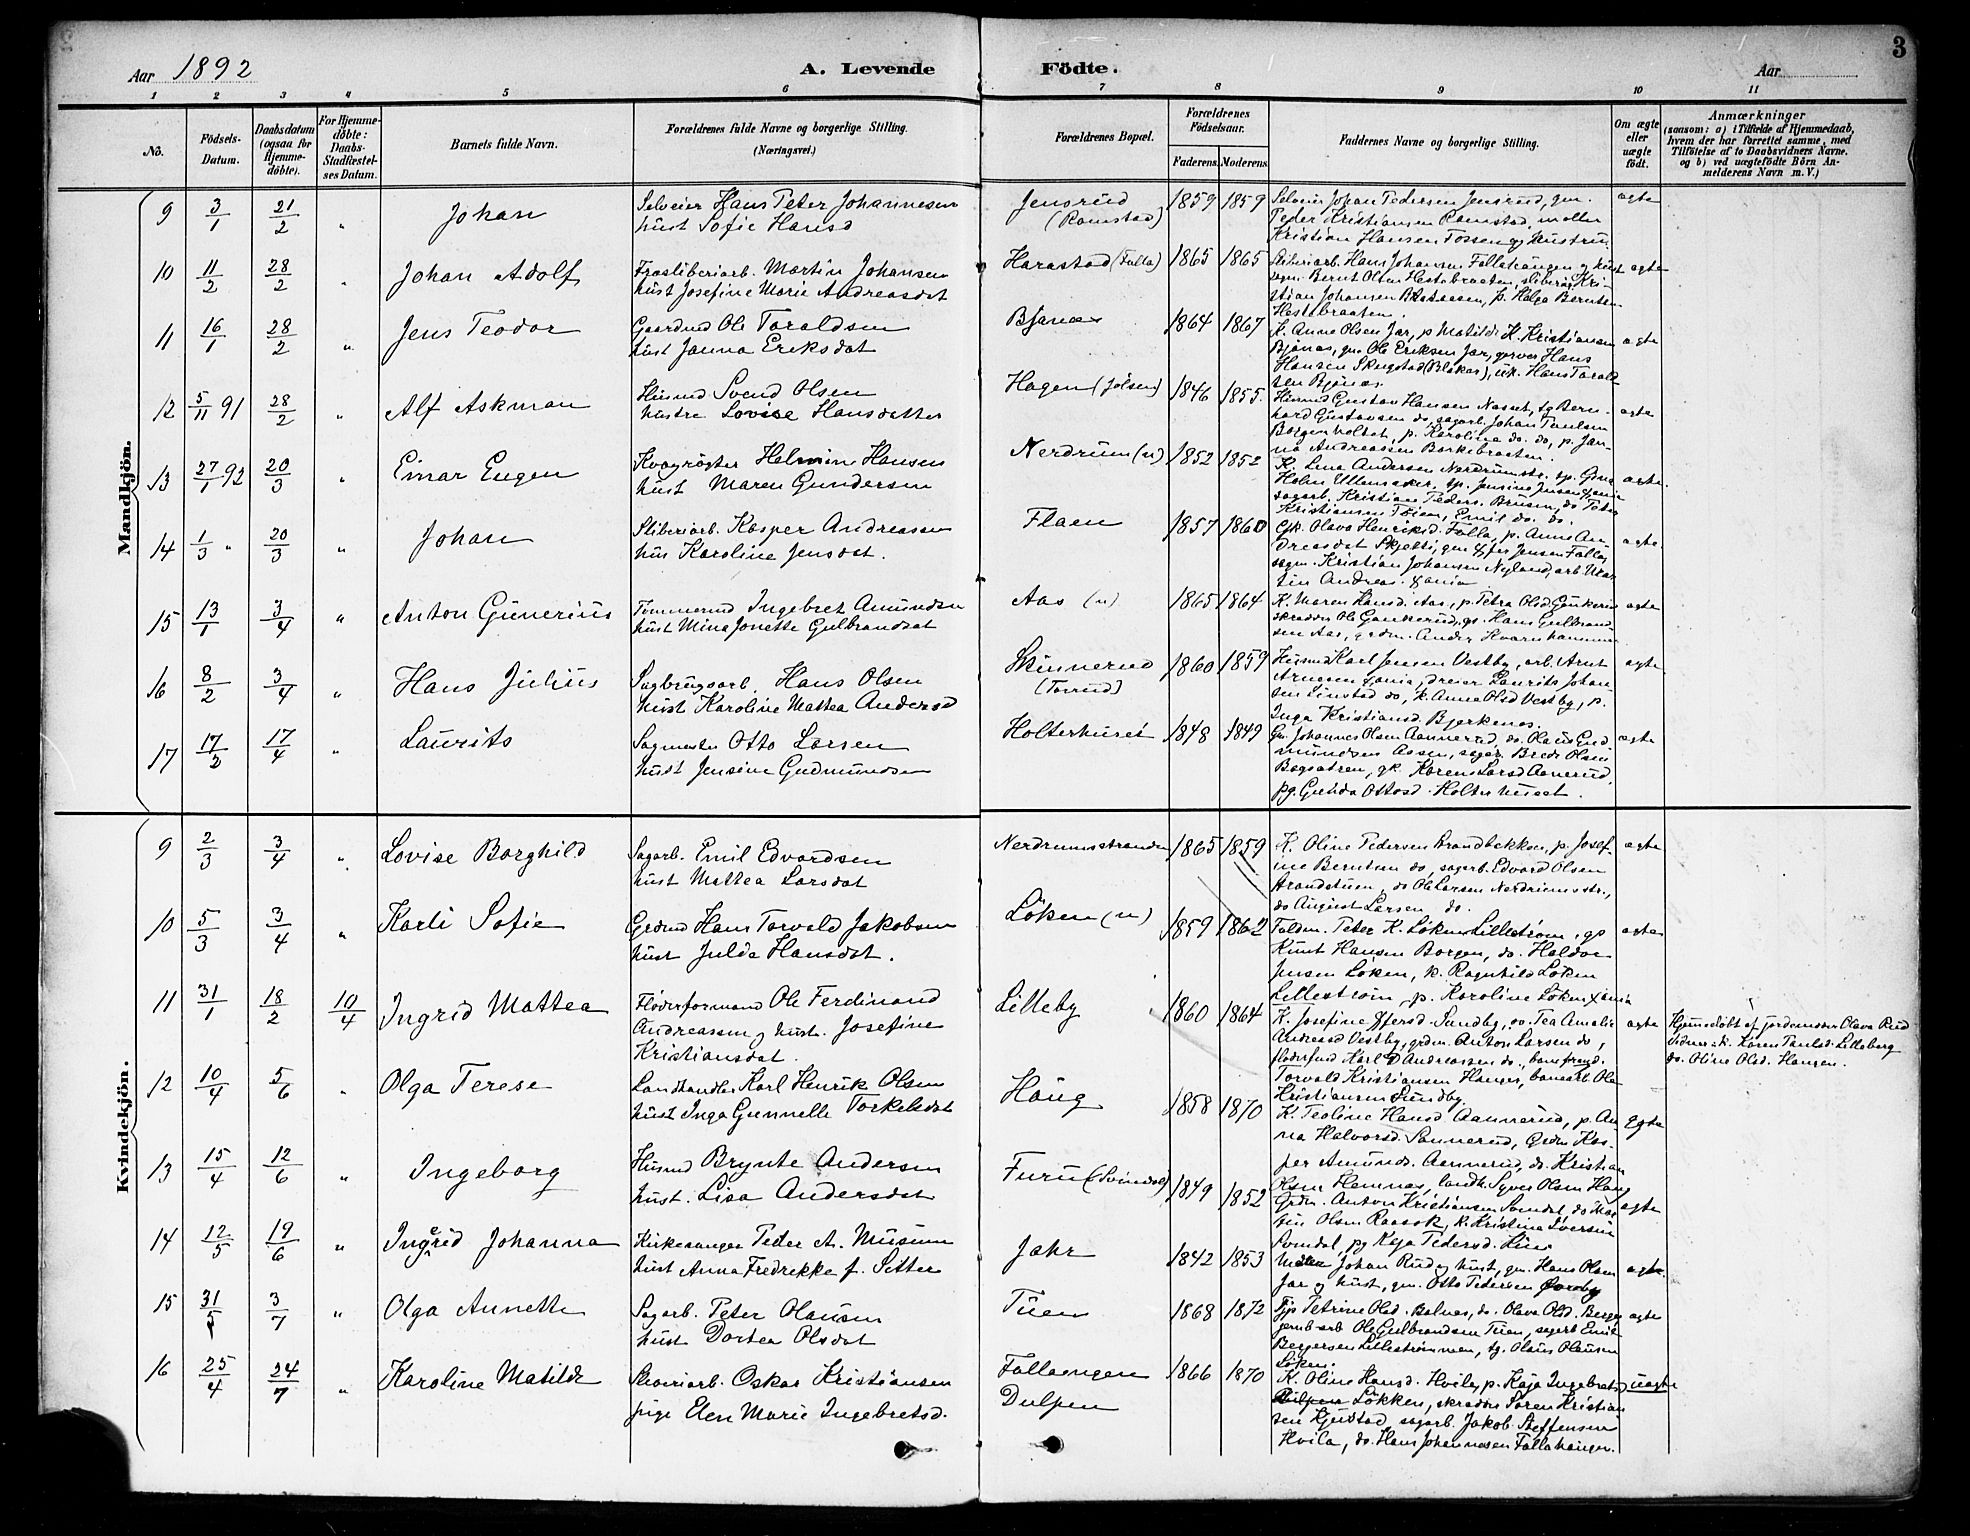 Aar 1892
A. Levende Födte.
Aar
3
1 2 3 4 5 6 7 8 9 10 11
No.
Födsels-Datum.
Daabsdatum (ogsaa for Hjemme-döbte).
For Hjemme-döbte: Daabs-Stadfæstel-ses Datum.
Barnets fulde Navn.
Forældrenes fulde Navne og borgerlige Stilling. (Næringsvei.)
Forældrenes Bopæl.
Forældrenes Födselsaar.
Faderens. Moderens.
Faddernes Navne og borgerlige Stilling.
Om ægte eller uægte födt.
Anmærkninger
(saasom: a) i Tilfælde af Hjemmedaab,
hvem der har forrettet samme, med
Tilföielse af to Daabsvidners Navne.
og b) ved uægtefödte Börn An-
melderens Navn m. V.)
Mandkjön.
9 3/1 21/2 " Johan
Selveier Hans Peter Johannesen
hust Sofie Hansd
Jensrud (Ramstad) 1859 1859
Selveier Johan Pedersen Jensrud, gm.
Peder Kristiansen Ramstad, møller
Kristian Hansen Fossen og hustru
ægte
10 11/2 28/2 " Johan Adolf
Træsliberiarb. Martin Johansen
hust Josefine Marie Andreasdat
Harastad (Falla) 1865 1865
Sliberiarb. Hans Johansen Fallahaugen og hust
sagm. Bernt Olsen Hestebraaten, sliberiarb Kri-
stian Johansen, p. Helga Berntsen
Hestebraaten.
ægte
11 16/1 28/2 " Jens Teodor
Gaardmd Ole Taraldsen
hust Janna Eriksdat
Bjønæs 1864 1867
K. Anne Olsen Jar, p Matilde K. Kristiansen
Bjønæs, gm Ole Eriksen Jar, garver Hans
Hansen Skugstad (Blaker), uk. Hans Tarald-
sen Bjønæs.
ægte
12 5/11 91 28/2 " Alf Askman
Husmd Svend Olsen
hustru Lovise Hansdatter
Hagen (Jølsen) 1846 1855.
Husmd Gustav Hansen Næsset, tg Bern-
hard Gustavsen do, sagarb. Johan Paulsen
Borgenholtet, p. Karoline do. do, p. Jan-
na Andreassen Børkebraaten.
ægte
13 27/1 92 20/3 " Einar Eugen
Kvægrøgter Helmine Hansen
hust Maren Gundersen
Nerdrum (n) 1852 1852
K. Lina Andersen Nerdrumstr. sp. Gina
Holm Ullensaker, sp. Jensine Jensen Xania
sagarb. Kristian Peders. Brusm, do Peter
Kristiansen Toien, Emil do. do.
ægte.
14 1/3 " 20/3 " Johan
Sliberiarb. Kasper Andreassen
hus Karoline Jensdat.
Flaen 1857 1860
Gk. Olava Henriksd. Falla, p. Anne An-
dreasdat Skjølti, gm Jensen Falla,
sagm. Kristian Johansen Nyland, arb. Mar-
tin Andreas. Xania
ægte.
15 13/1 3/4 " Anton Gunerius
Tømmermd Ingebret Amundsen
hust Mina Jonette Gulbrandsdat
Aas (n) 1865 1864
K. Maren Hansd. Aas, p. Petra Olsd. Gaukerud
skrædder Ole Gaukerud, gs. Hans Gulbrand-
sen Aas, grdm. Anders Kvernhammer
ægte
16 8/2 3/4 " Hans Julius
Sagbrugsarb. Hans Olsen
hust Karoline Mattea Andersd
Skinnerud (Torrud) 1860 1859
Husmd Karl Jensen Vestby, arb. Arnt
Arnesen Xania, dreier Laurits Johan-
sen Linstad do, k. Anne Olsd Vestby, p.
Inga Kristiansd. Bjerkenes.
ægte
17 17/2 17/4 " Laurits
Sagmester Otto Larsen
hust Jensine Gudmundsen
Holterhuset 1848 1849
Gm Johannes Olsen Aannerud, do. Olaus Gud-
mundsen Aasen, sagar. Brede Olsen
Bøgsætren, gk. Karen Larsd Aanerud,
pg. Gunda Ottosd. Holterhuset.
ægte
Kvindekjön.
9 2/3 3/4 " Lovise Borghild
Sagarb. Emil Edvardsen
hust Mattea Larsdat
Nerdrumsstranden 1865 1859
K. Oline Pedersen Brandbekken, p. Josef-
ine Berntsen do, sagarb. Edvard Olsen
Strandstuen, do Ole Larsen Nerdrumsstr.,
do August Larsen do.
ægte
10 5/3 3/4 " Karli Sofie
Grdmd Hans Torvald Jakobsen
hust Julda Hansdat.
Løken (n) 1859 1862
Toldm. Peter K. Løken Lillestrøm, gs
Knut Hansen Borgen, do. Haldor
Jensen Løken, k. Ragnhild Løken
Lillestrøm, p. Karoline Løken Xania
ægte
11 31/1 18/2 10/4 Ingrid Mattea
Fløderformand Ole Ferdinand
Andreassen og hust. Josefine
Kristiansdat.
Lilleby 1860 1864
K. Josefine Sandby, do. Tea Amalie
Andreasd Vestby, grdm. Anton Larsen do,
fløderfmd Karl D Andreassen do.,
Torvald Kristiansen Hanger, banearb. Ole
Kristiansen Sundby.
ægte
Hjemmedøbt af jordemoder Olava Rud
Vidner: k. Karen Paulsd. Lilleberg
do. Oline Olsd. Haugen.
12 10/4 5/6 " Olga Terese
Landhandler Karl Henrik Olsen
hust Inga Gunnelle Torkelsdat
Haug 1858 1870
K. Teoline Hansd. Aannerud, p. An-
na Halvorsd. Sannerud, Grdm Kas-
per Amunds. Aannerud, do. Kristian
Olsen Hemnes, landh. Syver Olsen Haug
Egte
13 15/4 12/6 " Ingeborg
Husmd Brynte Andersen
hust. Lisa Andersdat
Furu (Svindal) 1849 1852
Grdm. Anton Kristiansen Svindal, do Mar-
tin Olsen Raasok, k. Kristine Iversen
Svindal, pg Kaja Pedersd. Lien
ægte
14 12/5 19/6 " Ingerid Johanna
Kirkesanger Peder A. Musum
hust Anna Fredrekke f. Sitter
Jahr 1842 1853
Møller Johan Rud og hust, gm. Hans Olsen
Jar og hust, gm. Otto Pedersen
ægte.
15 31/5 3/7 " Olga Annette
Sagarb. Peter Olausen
hust Dortea Olsdat
Tuen 1868 1872
Tjp Petrine Olsd. Balnes, do. Olava Olsd. Berger
jernb.arb Ole Gulbrandsen Tuen, sagarb Emil
Bergersen Lillestrømmen, tg. Olaus Olausen
Løken.
ægte
16 25/4 24/7 " Karoline Matilde
Skoeriarb. Oskar Kristiansen
pige Elen Marie Ingebretsd.
Fallaengen
Dulpen 1866 1870
K. Oline Hansd. Hvila, p. Kaja Ingebretsd
Dulpen Løkken, skrædder Søren Kristian
sen Kjustad, sagarb. Jakob Steffensen
Hvila, do. Hans Johannesen Fallahaugen.
uægte